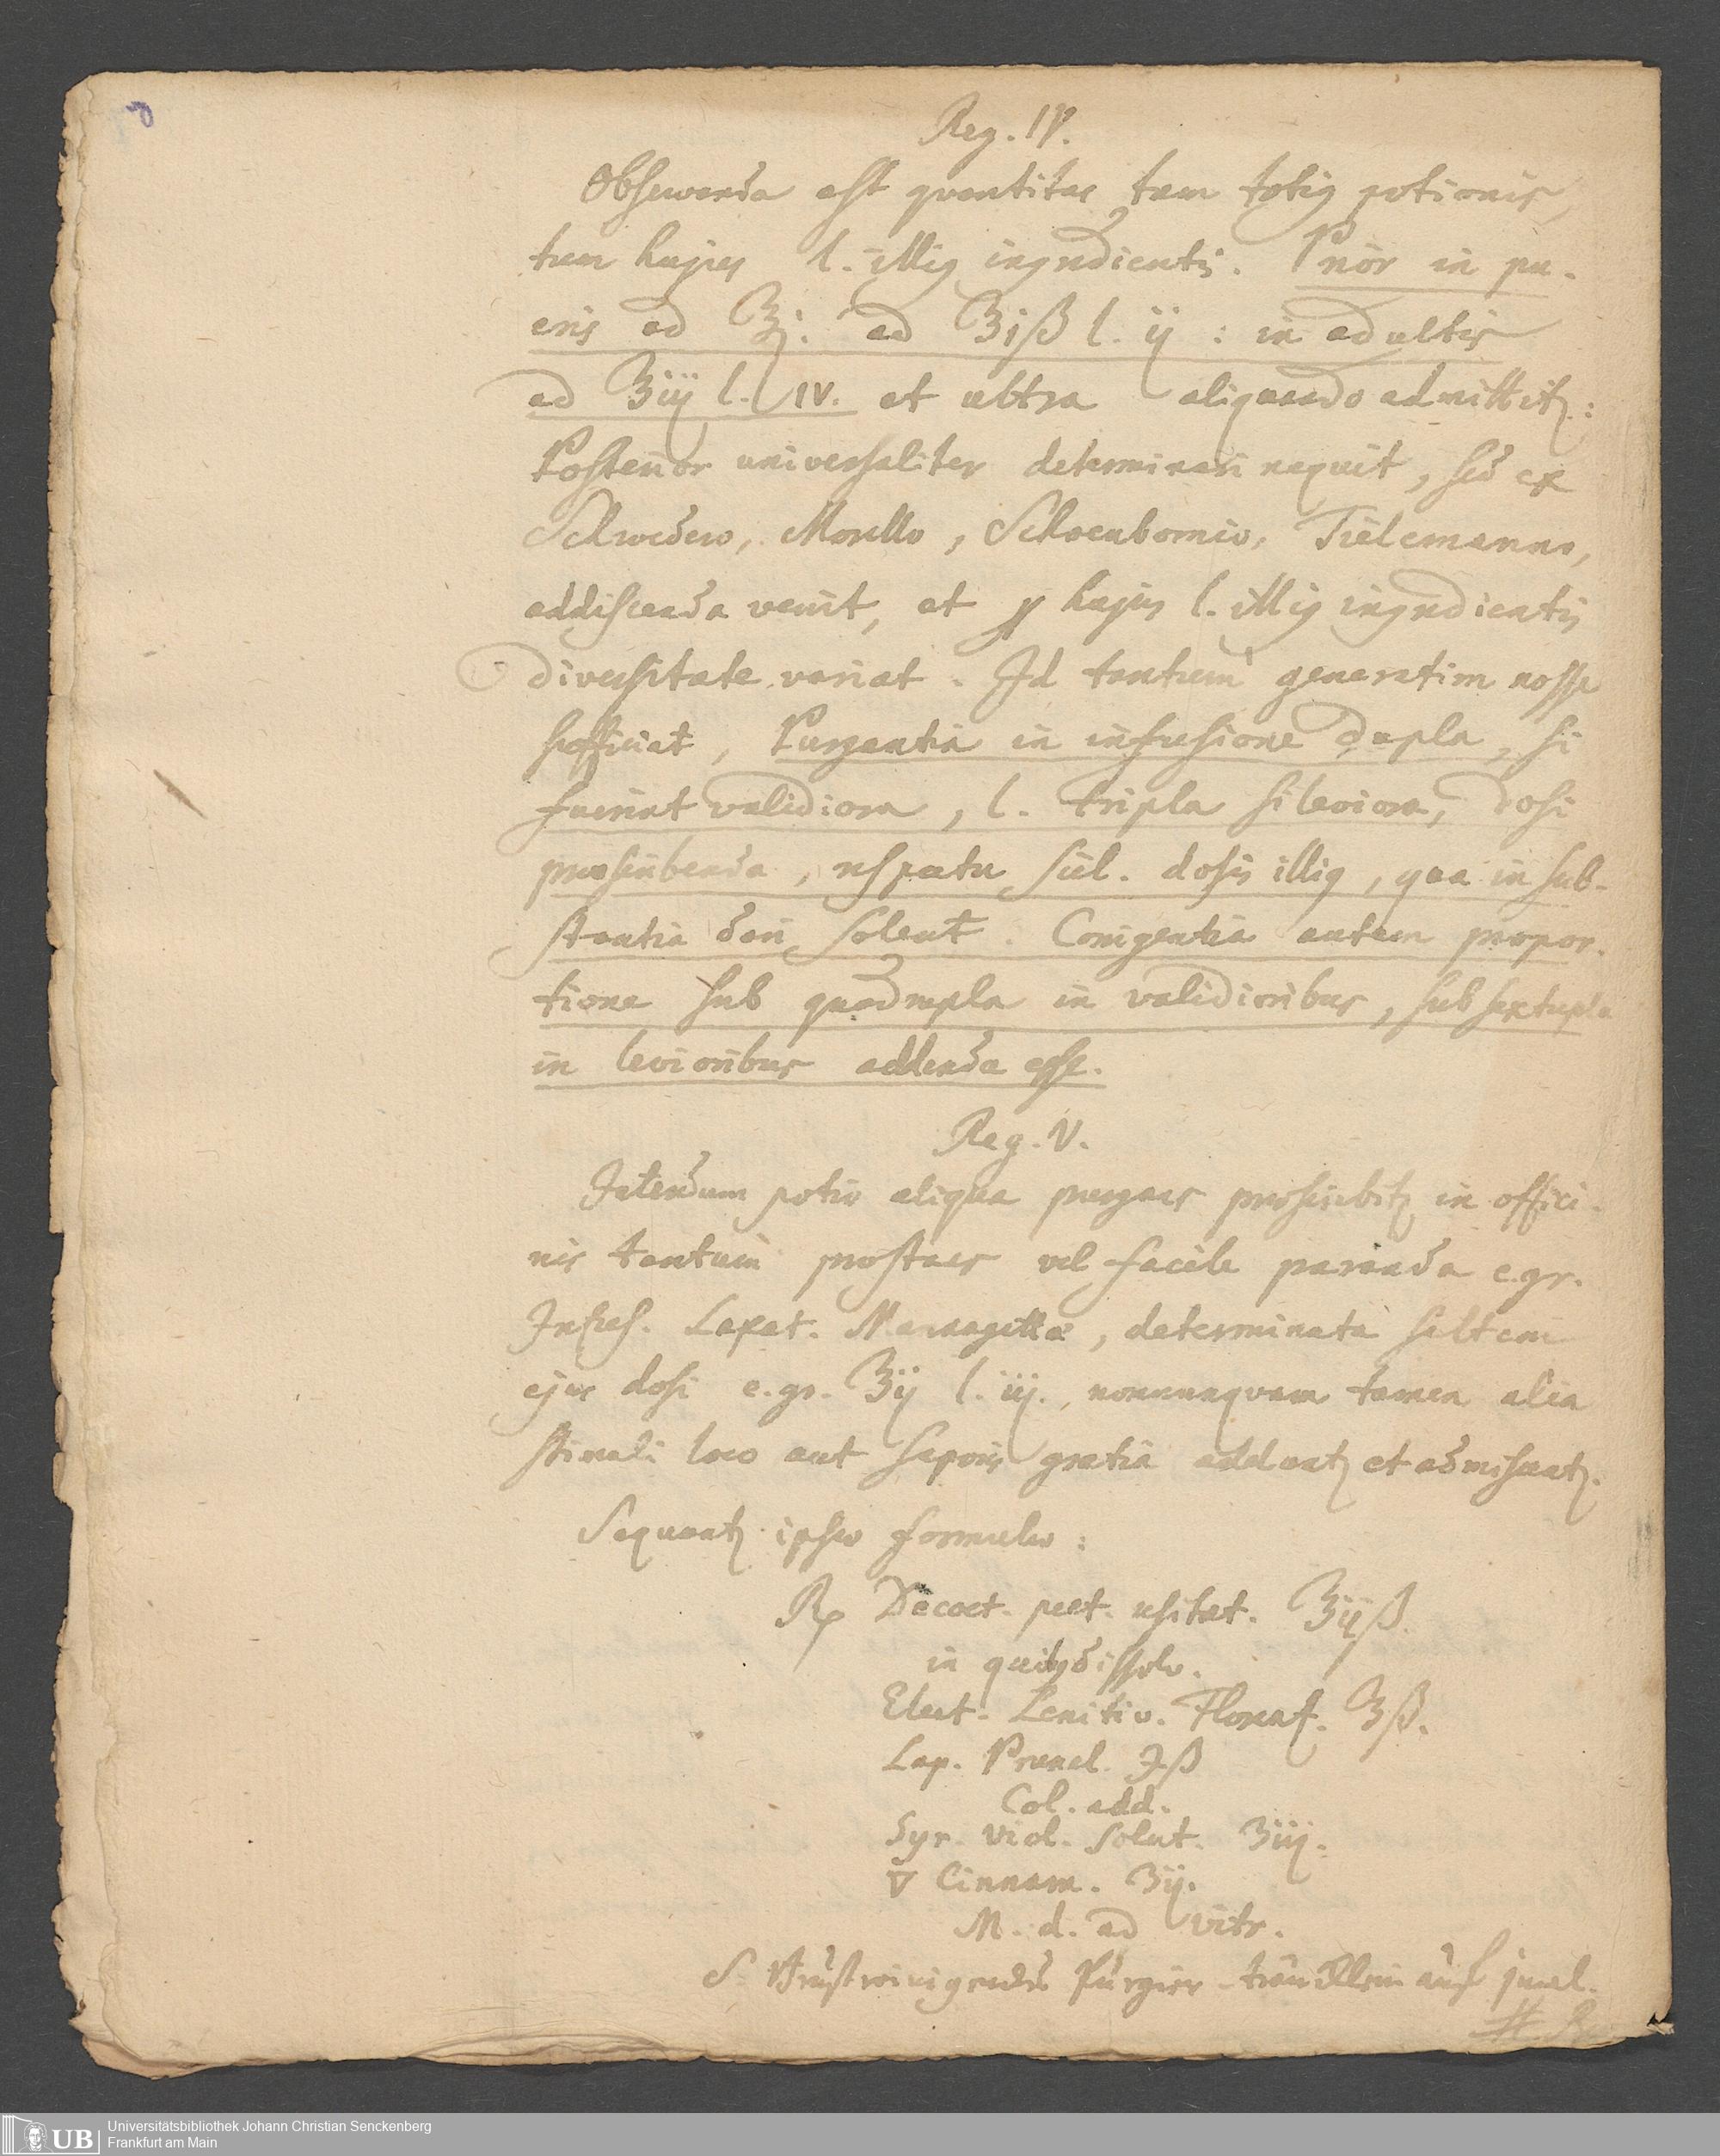 Reg. IV.
Observanda est quantitas tam totius potionis,
tum hujus l. illius ingredientis. Prior in pu-
eris ad ℥j. ad ℥jß l. ij : in adultis
ad ℥iij l. IV. et ultra aliquando admittitur:
Posterior universaliter determinari nequit, sed ex
Schrödero, Morello, Schoenbornio, Tielemanno,
addiscenda venit, et pro hujus l. illius ingredientis
diversitate variat. Id tantum generatim nosse
sufficiat, Purgantia in infusione dupla, si
fuerint validiora, l. tripla si leviora, dosi
praescribenda, respectu scil. dosis illius, qua in sub-
stantia dari solent. Corrigentia autem propor-
tione sub quadrupla in validioribus, sub sextupla
in levioribus addenda esse.
Reg. V.
Interdum potio aliqua purgans praescribitur in offici-
nis tantum prostans vel facile paranda e.gr.
Infus. Laxat. Mannagettae, determinata saltem
ejus dosi e.gr. ℥ij l. iij., nonnunquam tamen alia
stimuli loco aut saporis gratia adduntur et admiscentur.
Sequuntur ipsae formulae:
℞ Decoct. pect. usitat. ℥ijß.
in quibus dissolv.
Elect. Lenitiv. Florent. ℥ß.
Lap. Prunel. ℈ß
Col. add.
Syr. viol. solut. ʒiij.
▽ Cinnam. ʒij.
M. d. ad vitr.
S. Brustreinigendes Purgier-tränklein auf 1mal.